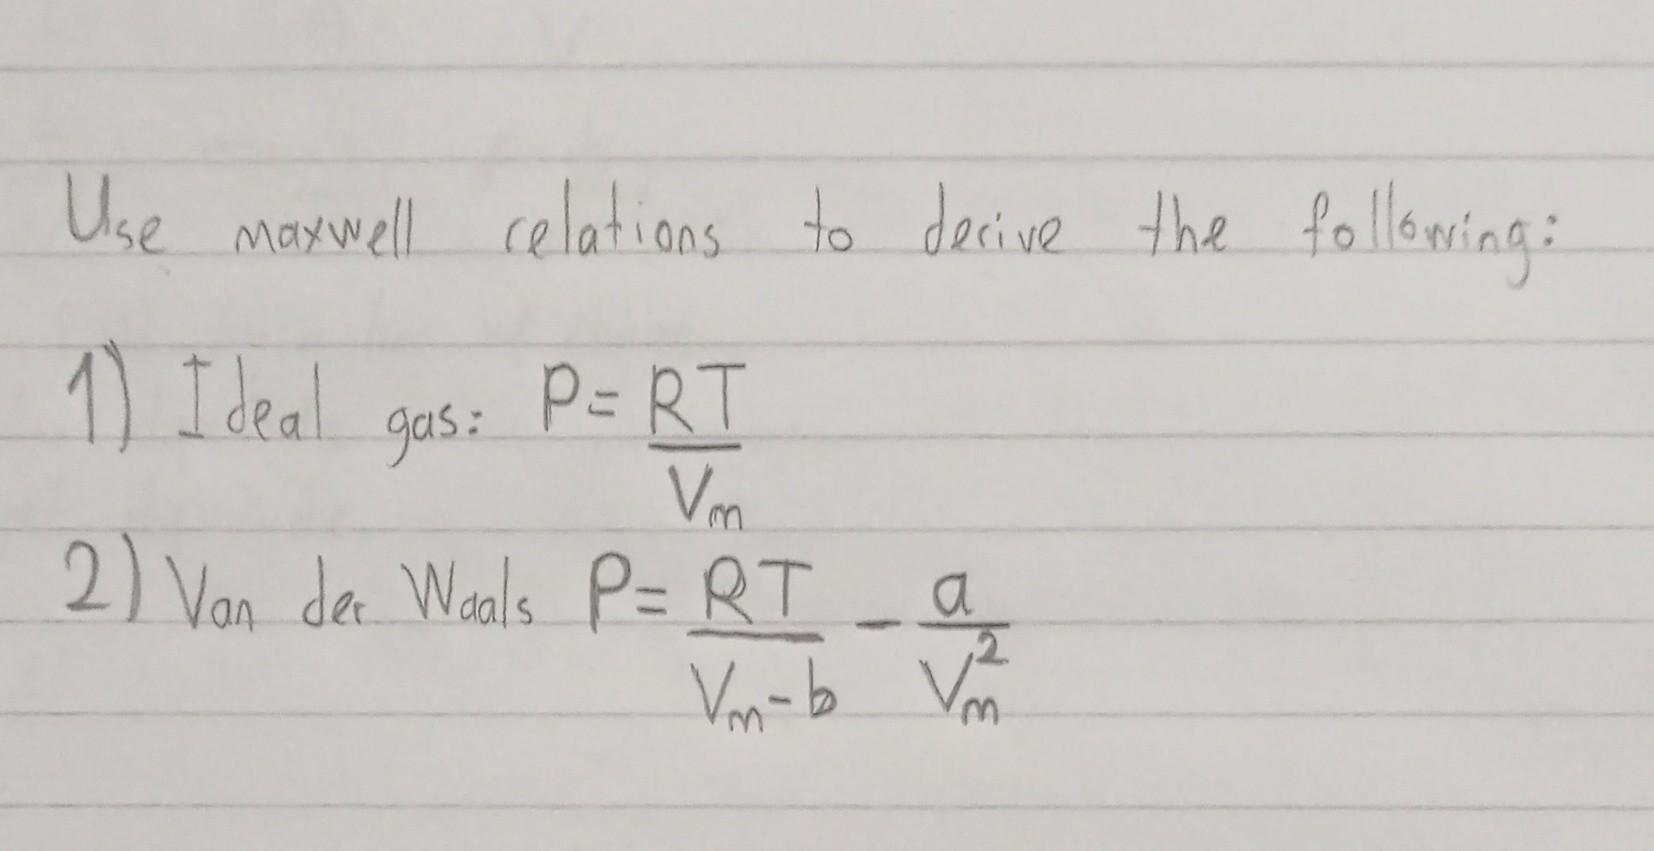 Use maxwell relations to derive the following:
1) Ideal gas: P = RT/Vm
2) Van der Waals P = RT/(Vm-b) - a/Vm²